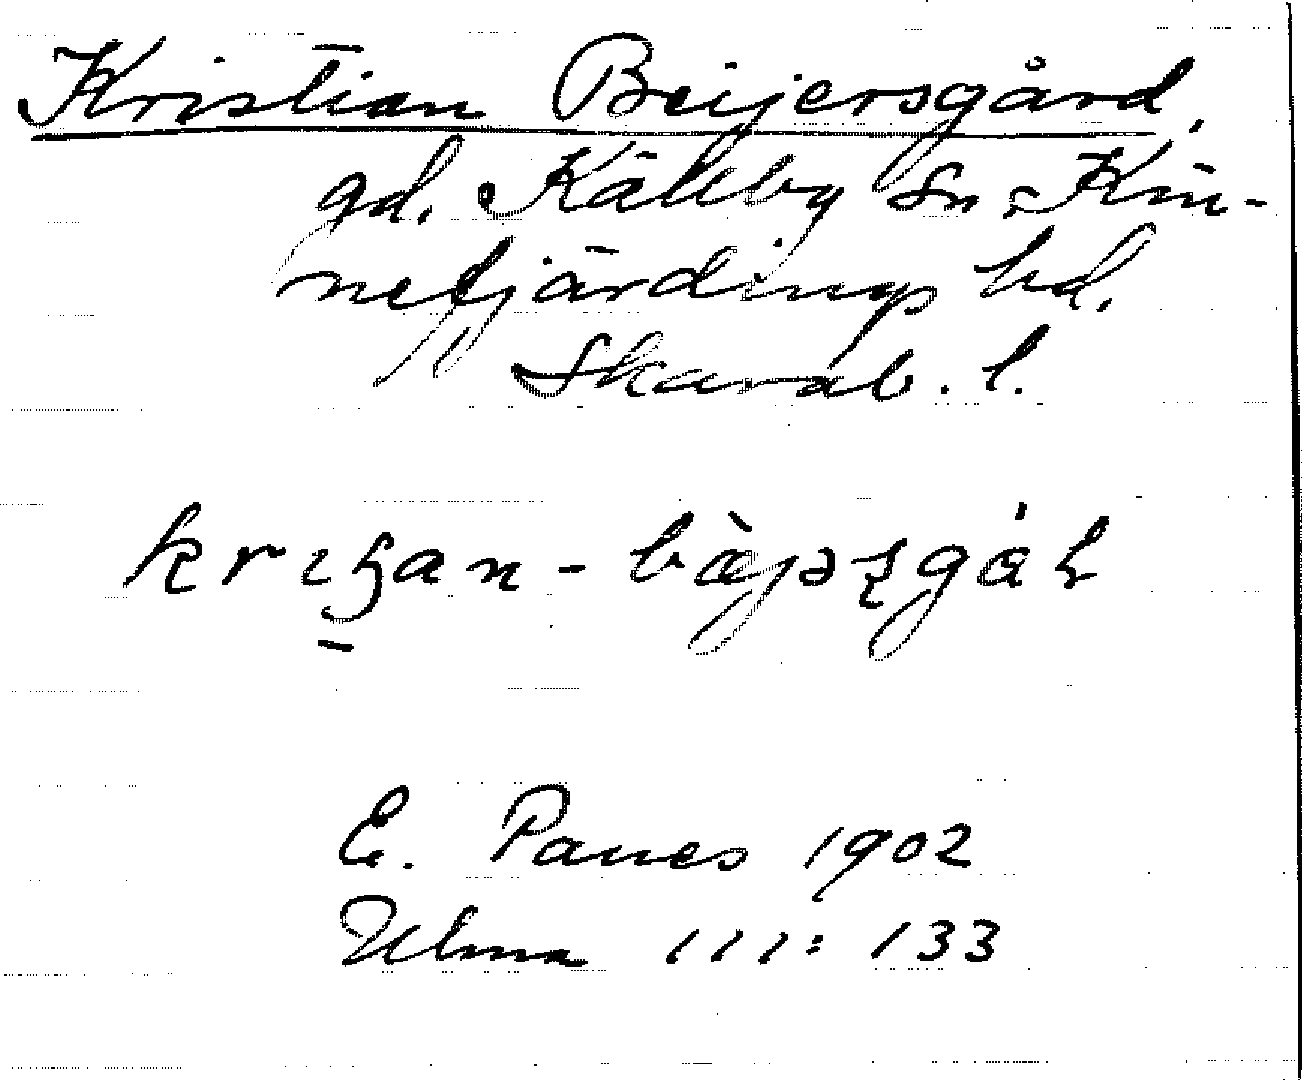 Kristian Beijersgård,
gd. Källby sn, Kin-
nefjärdings hd.
Skarab. l.
E. Panes 1902
Ulma 111: 133